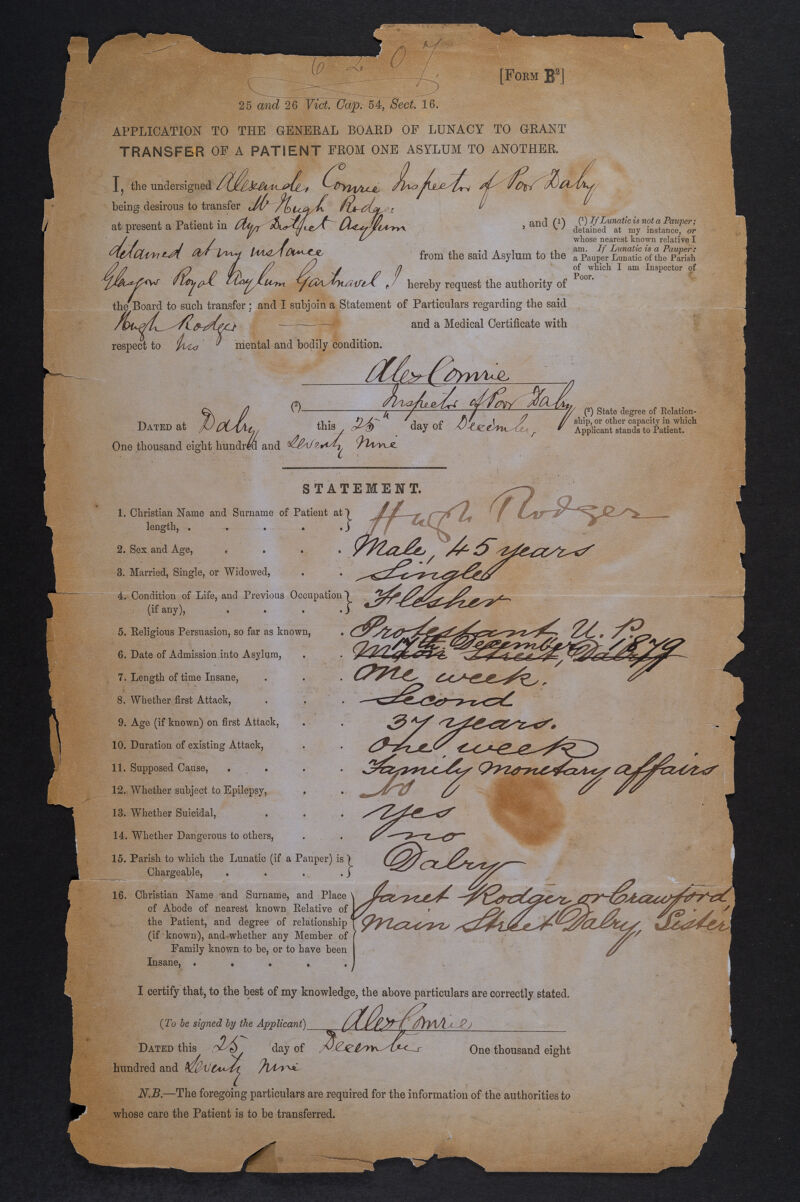 6207
[FORM B²]
25 and 26 Vict. Cap. 54, Sect. 16.
APPLICATION TO THE GENERAL BOARD OF LUNACY TO GRANT
TRANSFER OF A PATIENT FROM ONE ASYLUM TO ANOTHER.
I, the undersigned Alexander Comrie Inspector of Poor Dalry
being desirous to transfer Mr Hugh Rodger
at present a Patient in Ayr District Asylum , and (¹)
detained at my instance from the said Asylum to the
Glasgow Royal Asylum Gartnavel I hereby request the authority of
the Board to such transfer ; and I subjoin a Statement of Particulars regarding the said
Hugh Rodger and a Medical Certificate with
respect to his mental and bodily condition.
(¹) If Lunatic is not a Pauper;
detained at my instance, or
whose nearest known relative I
am. If Lunatic is a Pauper:
a Pauper Lunatic of the Parish
of which I am Inspector of
Poor.
Alex Comrie
(²) Inspector of Poor Dalry
DATED at Dalry this 25th day of December,
One thousand eight hundred and Seventy Nine
(²) State degree of Relation-
ship, or other capacity in which
Applicant stands to Patient.
STATEMENT.
1. Christian Name and Surname of Patient at
length, . . . . . Hugh Rodger
2. Sex and Age, . . . . Male, 45 years
3. Married, Single, or Widowed, . . Single
4. Condition of Life, and Previous Occupation
(if any), . . . . . Flesher
5. Religious Persuasion, so far as known, . Protestant U. P.
6. Date of Admission into Asylum, . . 17th December 1879
Main Street, Dalry
7. Length of time Insane, . . . One week.
8. Whether first Attack, . . . Second
9. Age (if known) on first Attack, . . 37 years.
10. Duration of existing Attack, . . One week
11. Supposed Cause, . . . . Family monetary affairs
12. Whether subject to Epilepsy, . . No
13. Whether Suicidal, . . . yes
14. Whether Dangerous to others, . . no
15. Parish to which the Lunatic (if a Pauper) is
Chargeable, . . . . . Dalry
16. Christian Name and Surname, and Place
of Abode of nearest known Relative of
the Patient, and degree of relationship
(if known), and whether any Member of
Family known to be, or to have been
Insane, . . . . .
Janet Rodger or Crawford,
Main Street Dalry, Sister
I certify that, to the best of my knowledge, the above particulars are correctly stated.
(To be signed by the Applicant) Alex Comrie
DATED this 25 day of December One thousand eight
hundred and Seventy Nine
N.B.—The foregoing particulars are required for the information of the authorities to
whose care the Patient is to be transferred.